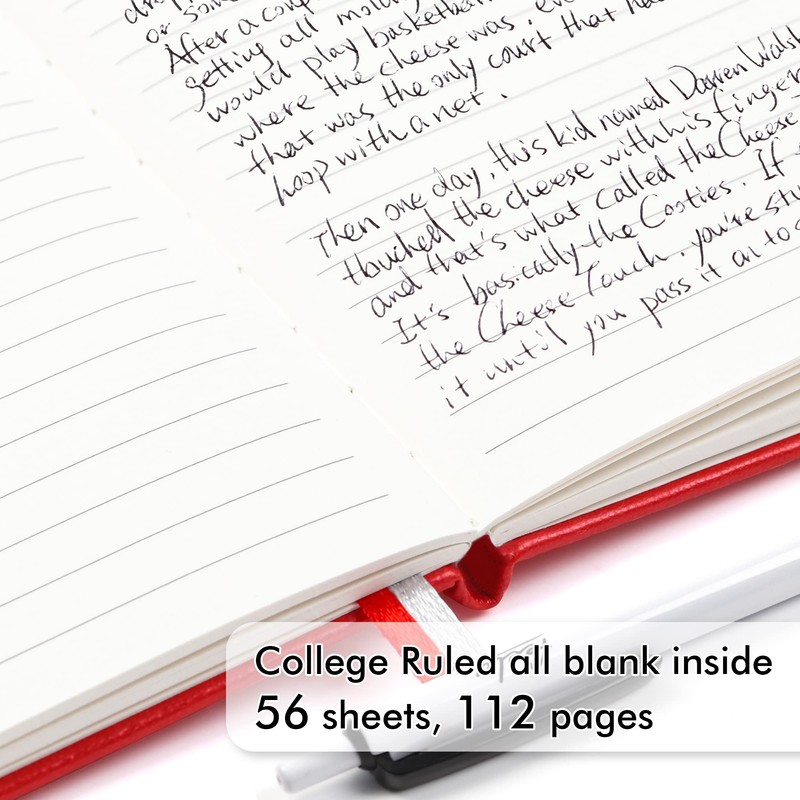 or some
After a coup
getting all mold
would play basketball
where the cheese was, ev
that was the only court that ha
hoop with a net.
Then one day, this kid named Darren Walsh
touched the cheese with his finger
and that's what called the Cheese
It's basically the Cooties. If
the Cheese Touch, you're stu
it until you pass it on to s
College Ruled all blank inside
56 sheets, 112 pages